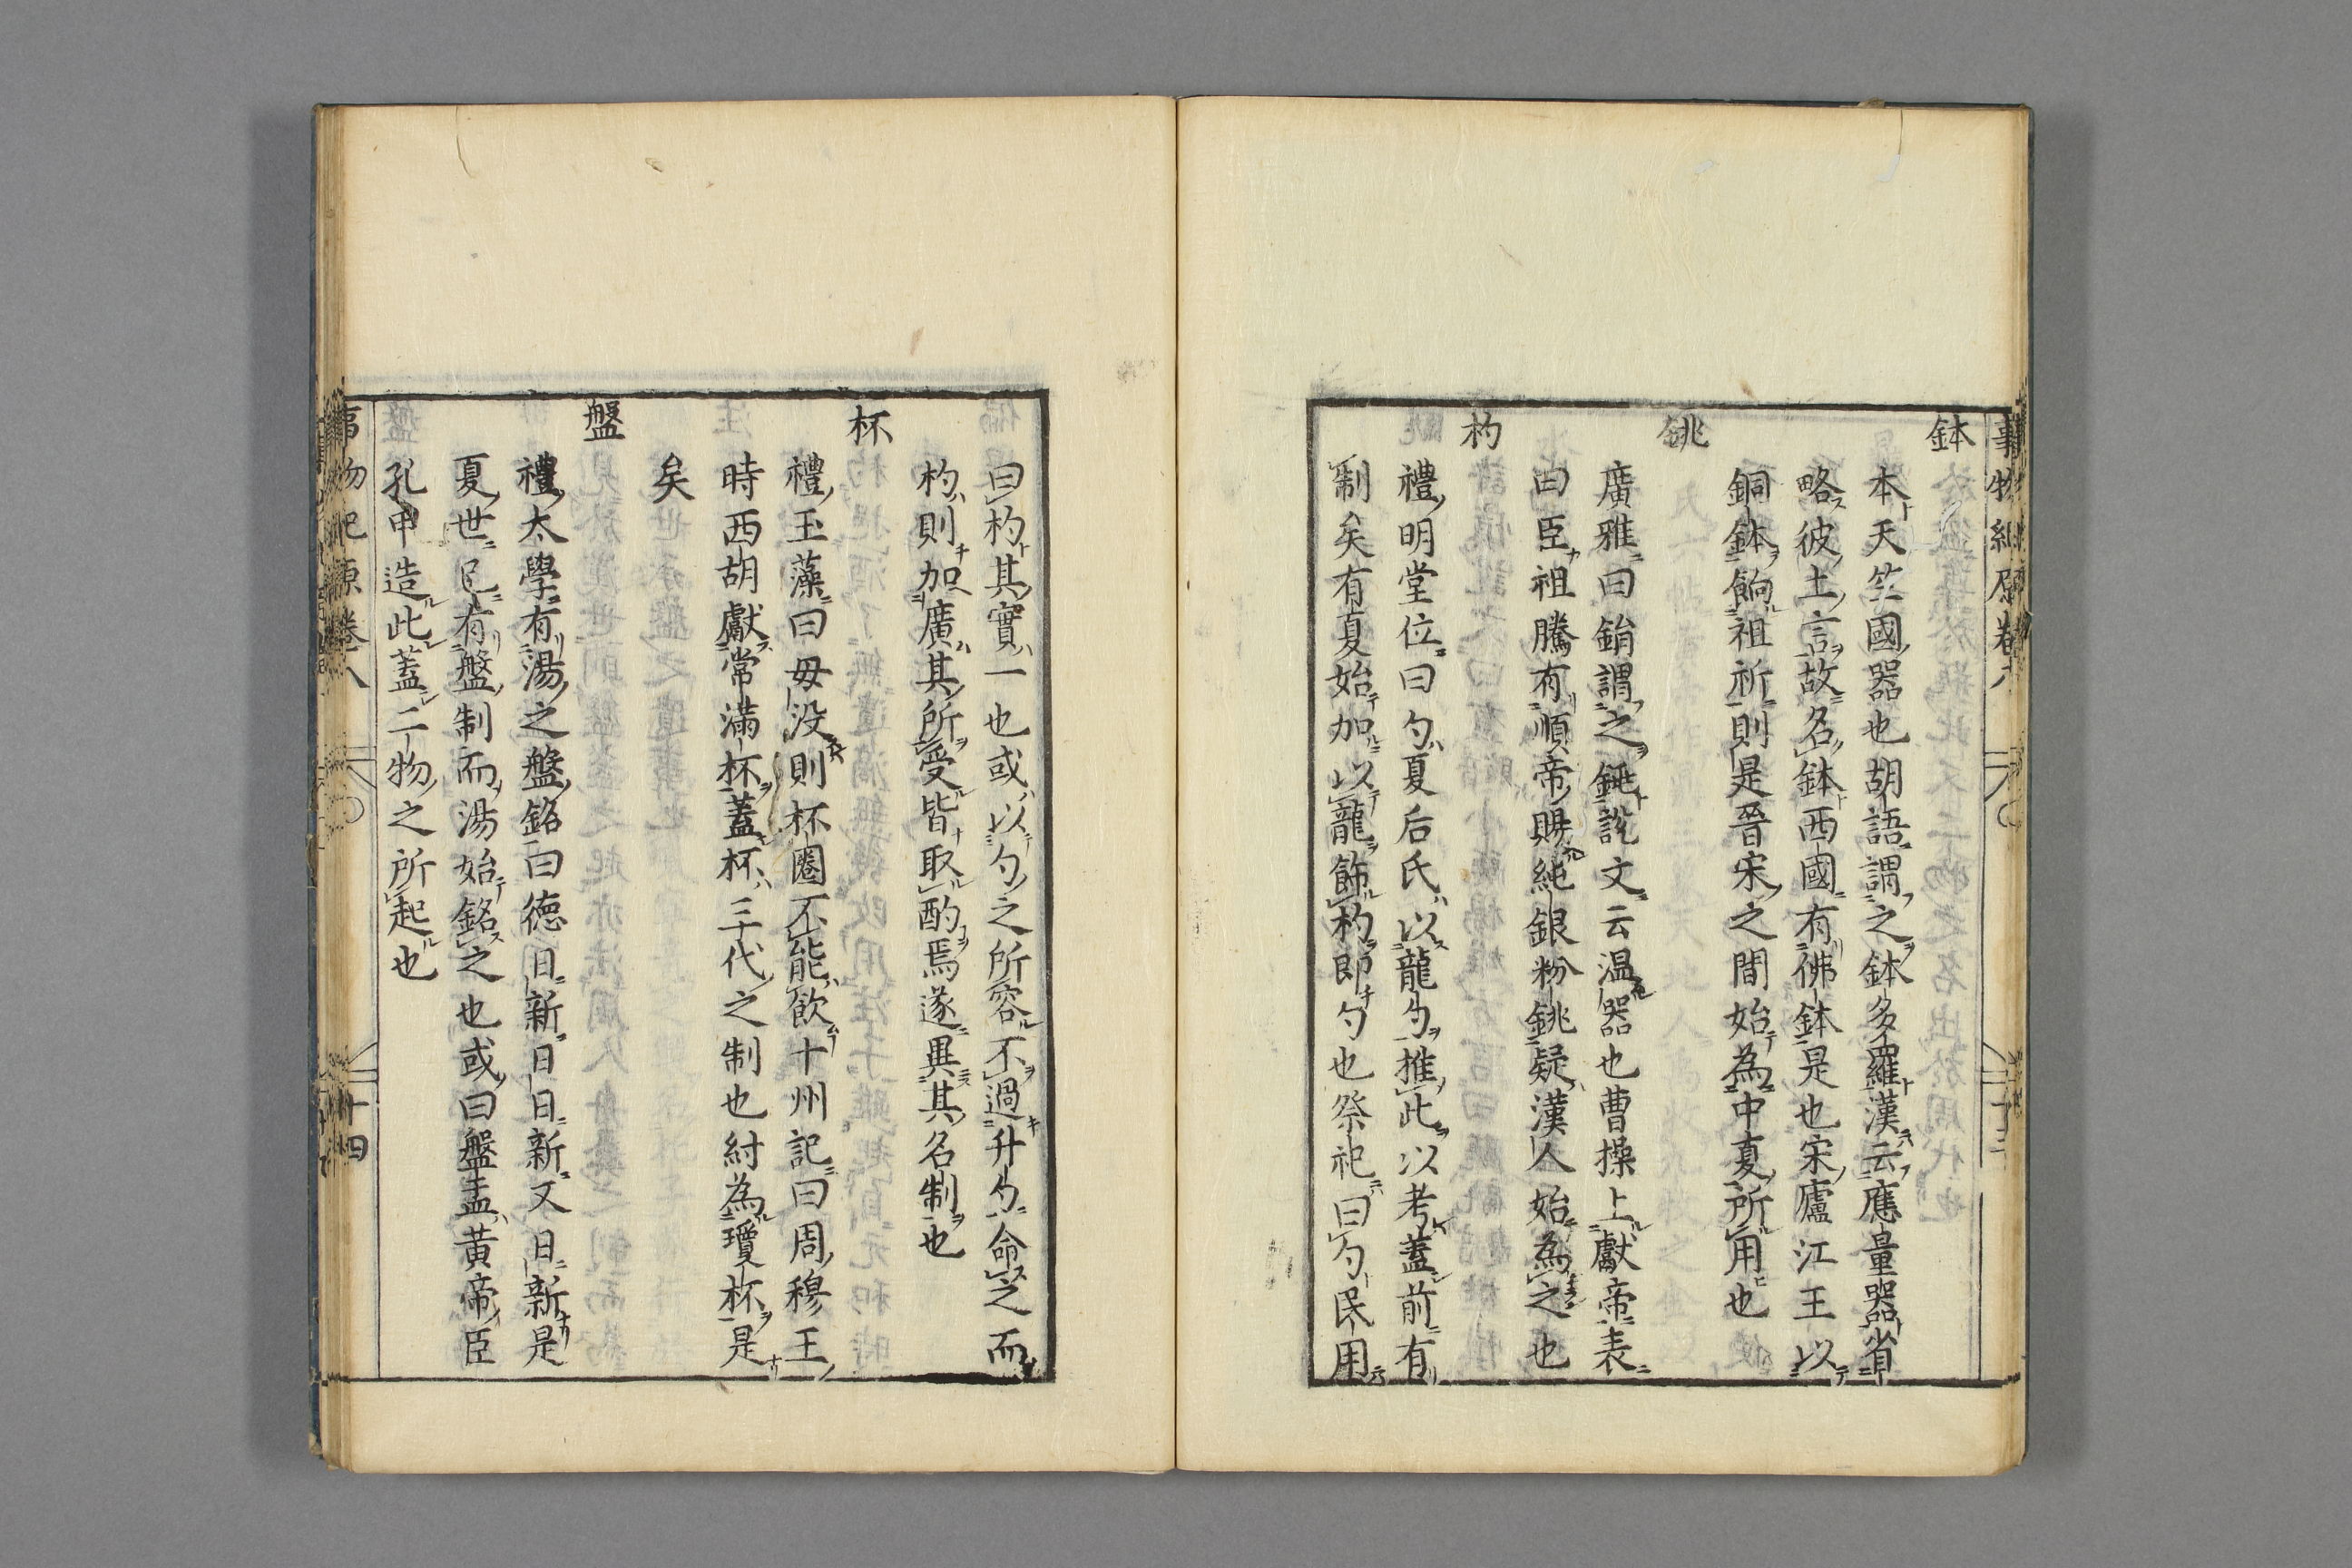 鉢
本天竺國器也胡語謂之鉢多羅漢云應量器省
略彼土言故名鉢西國有佛鉢是也宋廬江王以
銅鉢餉祖祈則是晉宋之間始為中夏所用也
銚
廣雅曰銷謂之銚說文云温器也曹操上獻帝表
曰臣祖騰有順帝賜純銀粉銚疑漢人始為之也
杓
禮明堂位曰勺夏后氏以龍勺推此以考蓋前有
制矣有夏始加以龍飾杓即勺也祭祀曰勺民用
曰杓其實一也或以勺之所容不過升勺命之而
杓則加廣其所受皆取酌焉遂異其名制也
杯
禮玉藻曰毋没則杯圈不能飲十州記曰周穆王
時西胡獻常滿杯蓋杯三代之制也紂為瓊杯是
矣
盤
禮太學有湯之盤銘曰徳日新日日新又日新是
夏世已有盤制而湯始銘之也或曰盤盂黃帝臣
孔甲造此蓋二物之所起也
事物紀原卷八
十四